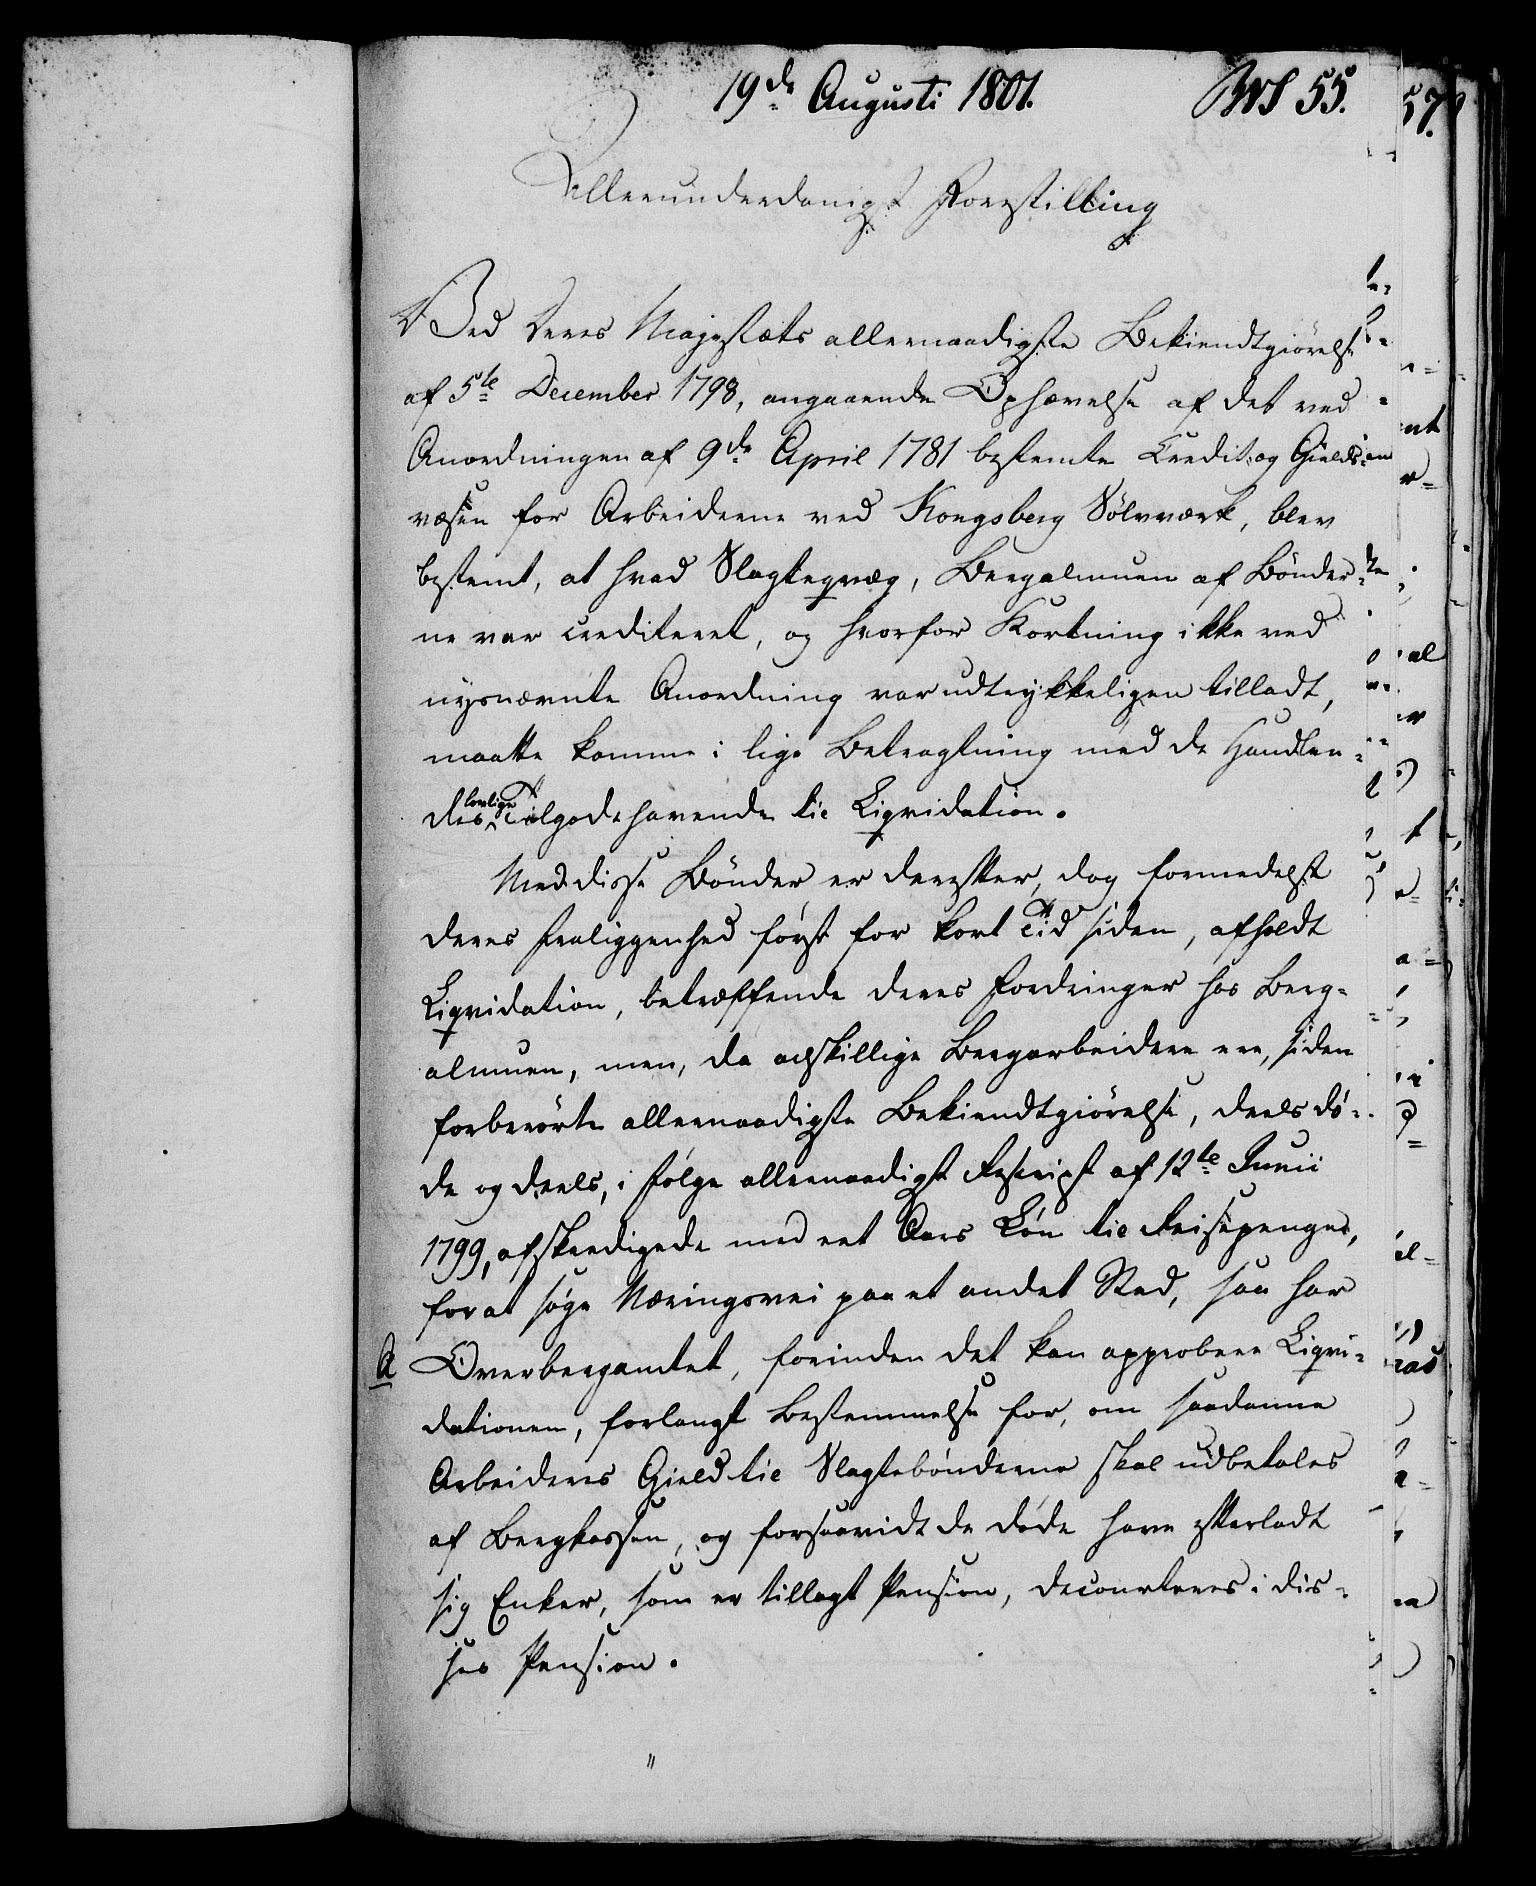 19de Augusti 1801. No 55.
Allerunderdanigst Forestilling
Ved Deres Majestæts allernaadigste Bekiendtgiørelse
af 5te December 1798, angaaende Ophævelse af det ved
Anordningen af 9de April 1781 bestemte Credit- og Gields-
væsen for Arbeiderne ved Kongsberg Sølvværk, blev
bestemt, at hvad Slagteqvæg, Bergalmuen af Bønder-
ne var crediteret, og hvorfor Kortning ikke ved
nysnævnte Anordning var udtrykkeligen tilladt,
maatte komme i lige Betragtning med de Handlen-
des lovlige Tilgodehavende til Liqvidation.
Med disse Bønder er derefter, dog formedelst
deres Fraliggenhed først for kort Tid siden, afholdt
Liqvidation, betræffende deres Fordringer hos Berg-
almuen, men, da adskillige Bergarbeidere ere, siden
forberørte allernaadigste Bekiendtgiørelse, deels dø-
de og deels, i Følge allernaadigst Rescript af 12te Junii
1799, afskedigede med eet Aars Løn til Reisepenge,
for at søge Næringsvei paa et andet Sted, saa har
A Overbergamtet, forinden det kan approbere Liqvi-
dationen, forlangt Bestemmelse for, om saadanne
Arbeideres Gield til Slagtebønderne skal udbetales
af Bergkassen, og forsaavidt de døde have efterladt
sig Enker, som er tillagt Pension, decourteres i dis-
ses Pension.